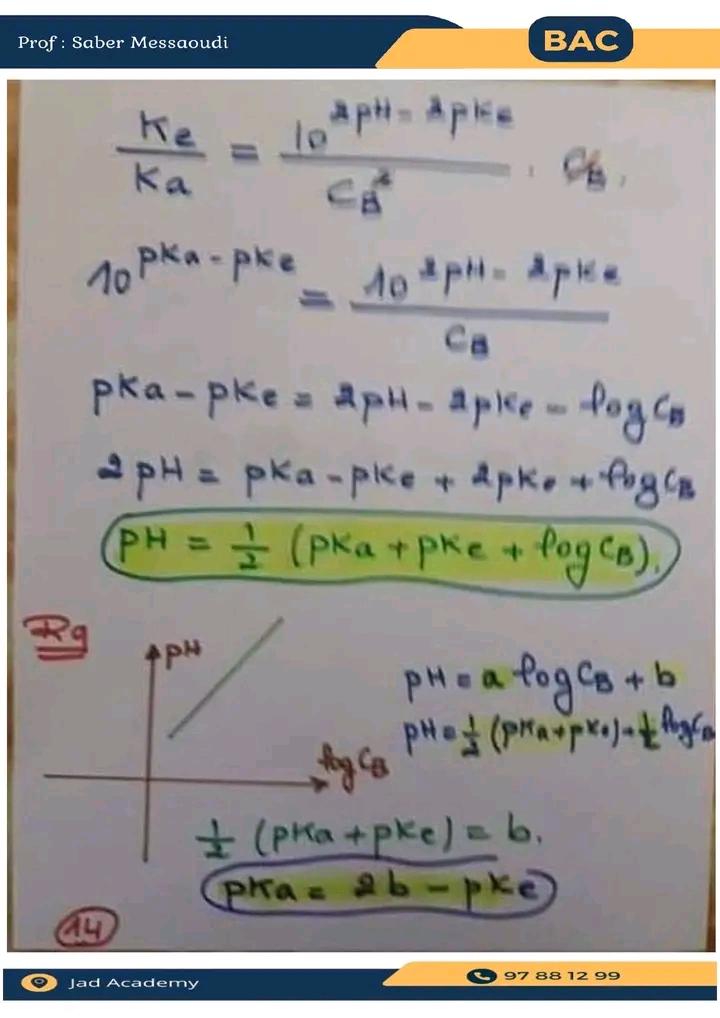 Prof : Saber Messaoudi
BAC
Ke/Ka = 10^(2pH - 2pKe)/CB² . CB.
10^(pKa - pKe) = 10^(2pH - 2pKe)/CB
pKa - pKe = 2pH - 2pKe - log CB
2pH = pKa - pKe + 2pKe + log CB
pH = 1/2 (pKa + pKe + log CB).
Rq
pH
pH = a log CB + b
pH = 1/2 (pKa + pKe) + 1/2 log CB
log CB
1/2 (pKa + pKe) = b.
pKa = 2b - pKe
14
Jad Academy
97 88 12 99